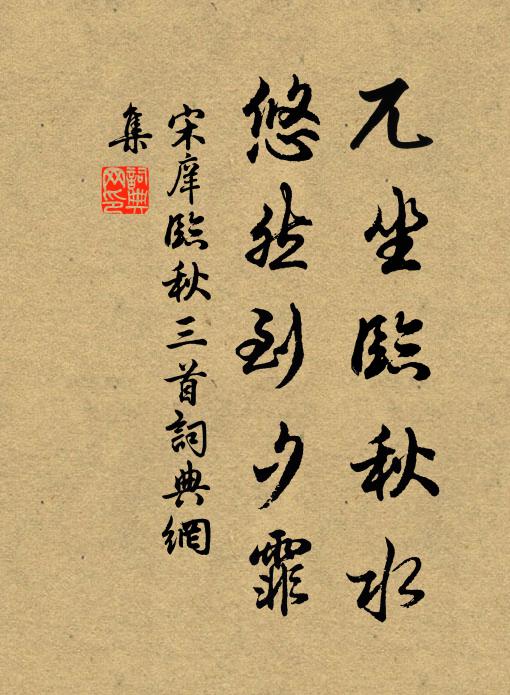 兀坐臨秋水
悠然到夕霏
宋庠臨秋三首詞典網
集
詞典網印